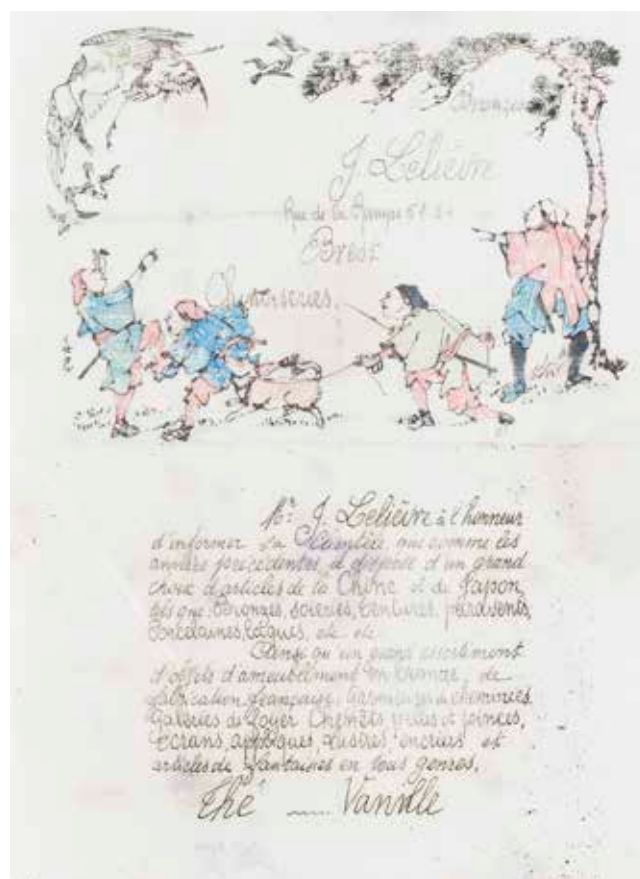 Bronzes
J. Lelièvre
Rue de la Rampe 51
Brest
Chinoiseries.
Mr. J. Lelièvre à l'honneur
d'informer sa Clientèle que comme les
années précédentes, il dispose d'un grand
choix d'articles de la Chine et du Japon
tels que, Bronzes, soieries, tentures, paravents,
Porcelaines, Laques, etc etc
Ainsi qu'un grand assortiment
d'objets d'ameublement en bronze, de
fabrication française, Garnitures de cheminées
Galeries de foyer Chenêts pelles et pinces,
écrans, appliques, lustres encriers et
articles de fantaisies en tous genres.
Thé Vanille